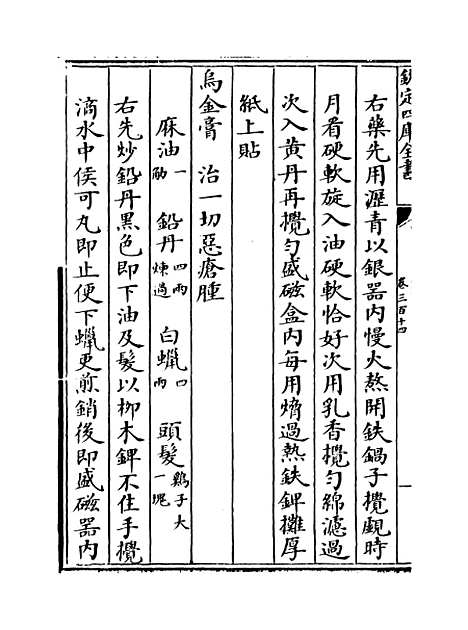 欽定四庫全書
卷三百十四
右藥先用瀝青以銀器內慢火熬開鉄鍋子攪覷時
月看硬軟旋入油硬軟恰好次用乳香攪勻綿濾過
次入黄丹再攪勻盛磁盒內每用熁過熱鉄錍攤厚
紙上貼
烏金膏 治一切惡瘡腫
麻油一觔 鉛丹四兩煉過 白蠟四兩 頭髮鷄子大一塊
右先炒鉛丹黑色即下油及髮以柳木錍不住手攪
滴水中俟可丸即止便下蠟更煎銷後即盛磁器內